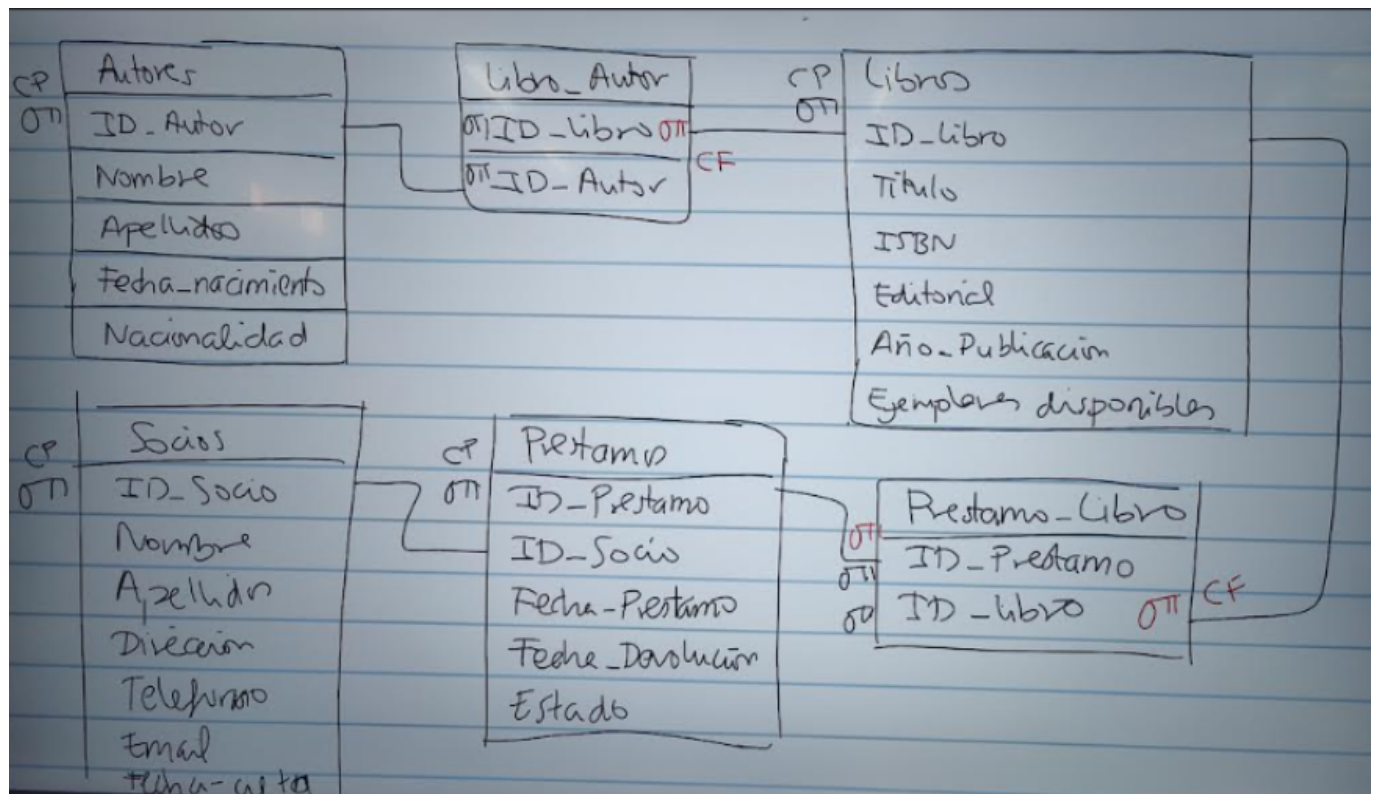 Autores
CP
ID_Autor
Nombre
Apellidos
Fecha_nacimiento
Nacionalidad
Libro_Autor
ID_Libro
CF
ID_Autor
Libros
CP
ID_Libro
Título
ISBN
Editorial
Año_Publicación
Ejemplares disponibles
Socios
CP
ID_Socio
Nombre
Apellidos
Dirección
Telefono
Email
Fecha-alta
Prestamo
CP
ID_Prestamo
ID_Socio
Fecha_Prestamo
Fecha_Devolución
Estado
Prestamo_Libro
ID_Prestamo
ID_Libro
CF